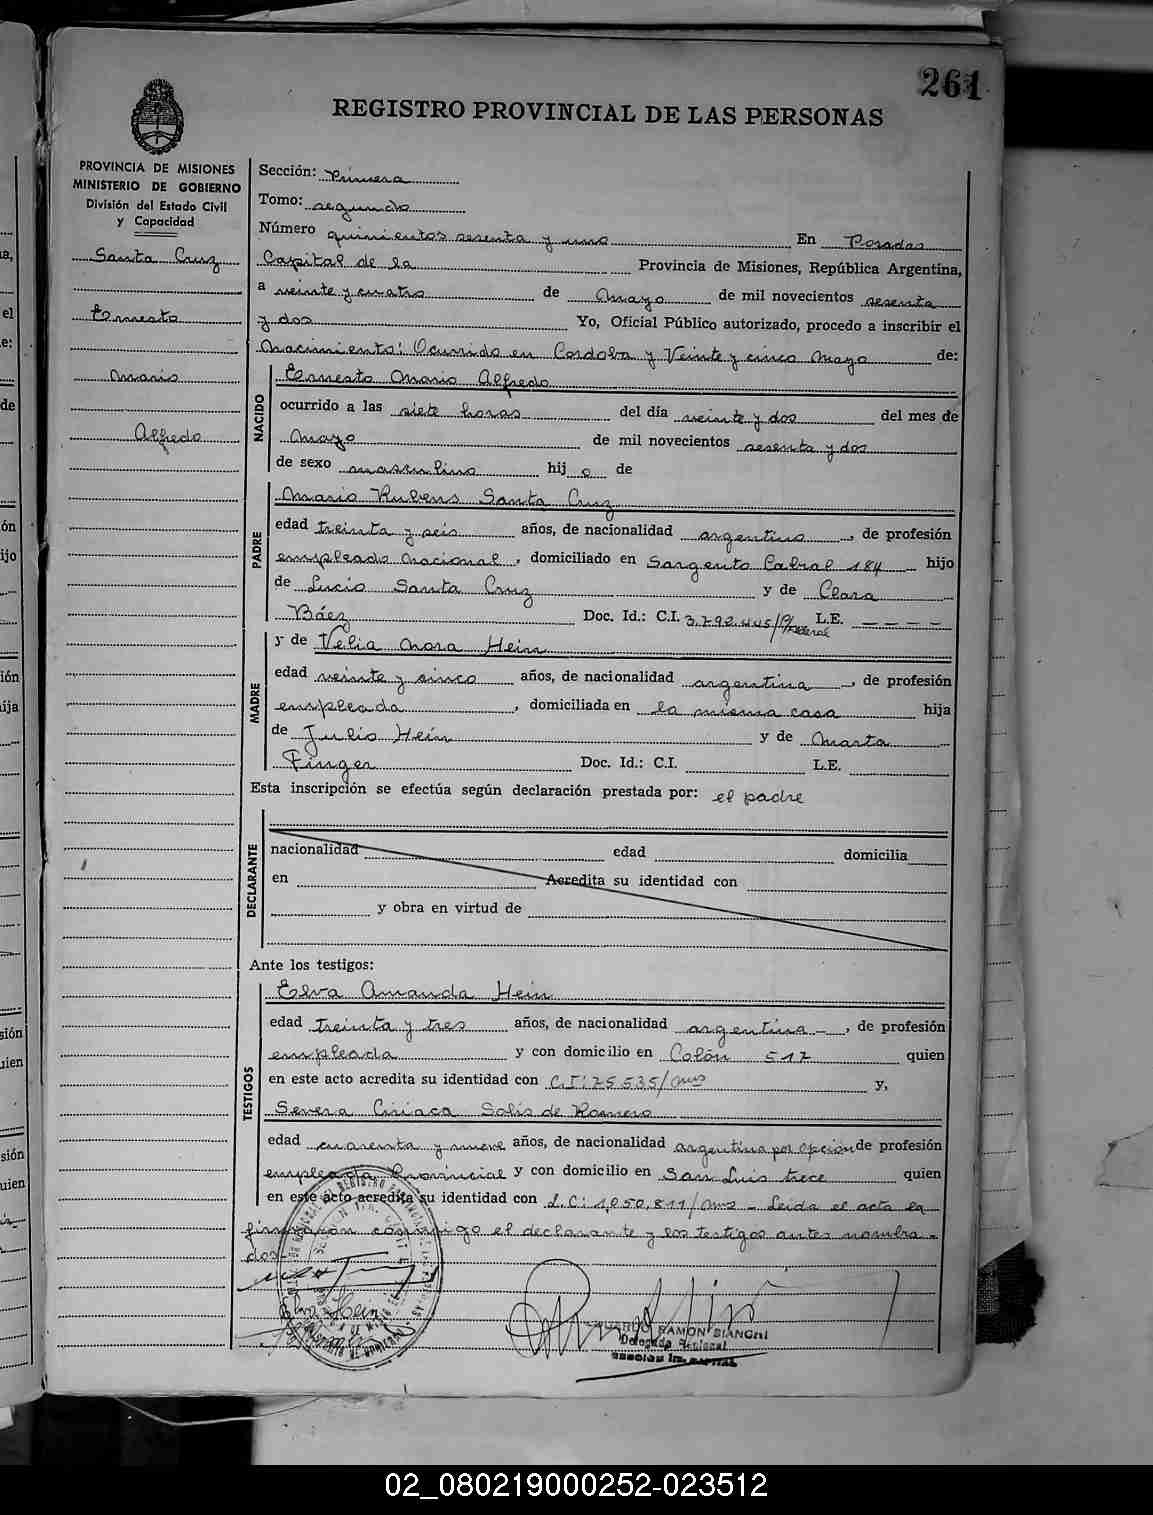 261
REGISTRO PROVINCIAL DE LAS PERSONAS
PROVINCIA DE MISIONES
MINISTERIO DE GOBIERNO
División del Estado Civil
y Capacidad
Santa Cruz
Ernesto
Mario
Alfredo
Sección: Primera
Tomo: segundo
Número quinientos sesenta y uno En Posadas
Capital de la Provincia de Misiones, República Argentina,
a veinte y cuatro de Mayo de mil novecientos sesenta
y dos Yo, Oficial Público autorizado, procedo a inscribir el
Nacimiento: Ocurrido en Cordoba y Veinte y cinco Mayo de:
NACIDO
Ernesto Mario Alfredo
ocurrido a las siete horas del día veinte y dos del mes de
Mayo de mil novecientos sesenta y dos
de sexo masculino hij o de
PADRE
Mario Rubens Santa Cruz
edad treinta y seis años, de nacionalidad argentino, de profesión
empleado Nacional, domiciliado en Sargento Cabral 184 hijo
de Lucio Santa Cruz y de Clara
Báez Doc. Id.: C.I. 3.792.445/P/Federal L.E. - - - -
MADRE
y de Velia Nora Hein
edad veinte y cinco años, de nacionalidad argentina, de profesión
empleada, domiciliada en la misma casa hija
de Julio Hein y de Marta
Finger Doc. Id.: C.I. L.E.
Esta inscripción se efectúa según declaración prestada por: el padre
DECLARANTE
nacionalidad edad domicilia
en Acredita su identidad con
y obra en virtud de
Ante los testigos:
TESTIGOS
Elva Amanda Hein
edad treinta y tres años, de nacionalidad argentina -, de profesión
empleada y con domicilio en Colón 517 quien
en este acto acredita su identidad con C.I: 75535/Mns y,
Severa Ciriaca Solis de Romero
edad cuarenta y nueve años, de nacionalidad argentina por opción de profesión
empleada Provincial y con domicilio en San Luis trece quien
en este acto acredita su identidad con L.C: 1,050,811/Mns - Leida el acta la
firmaron conmigo el declarante y los testigos antes nombra-
dos -
Hein
RAMON BIANCHI
Delegado
02_080219000252-023512